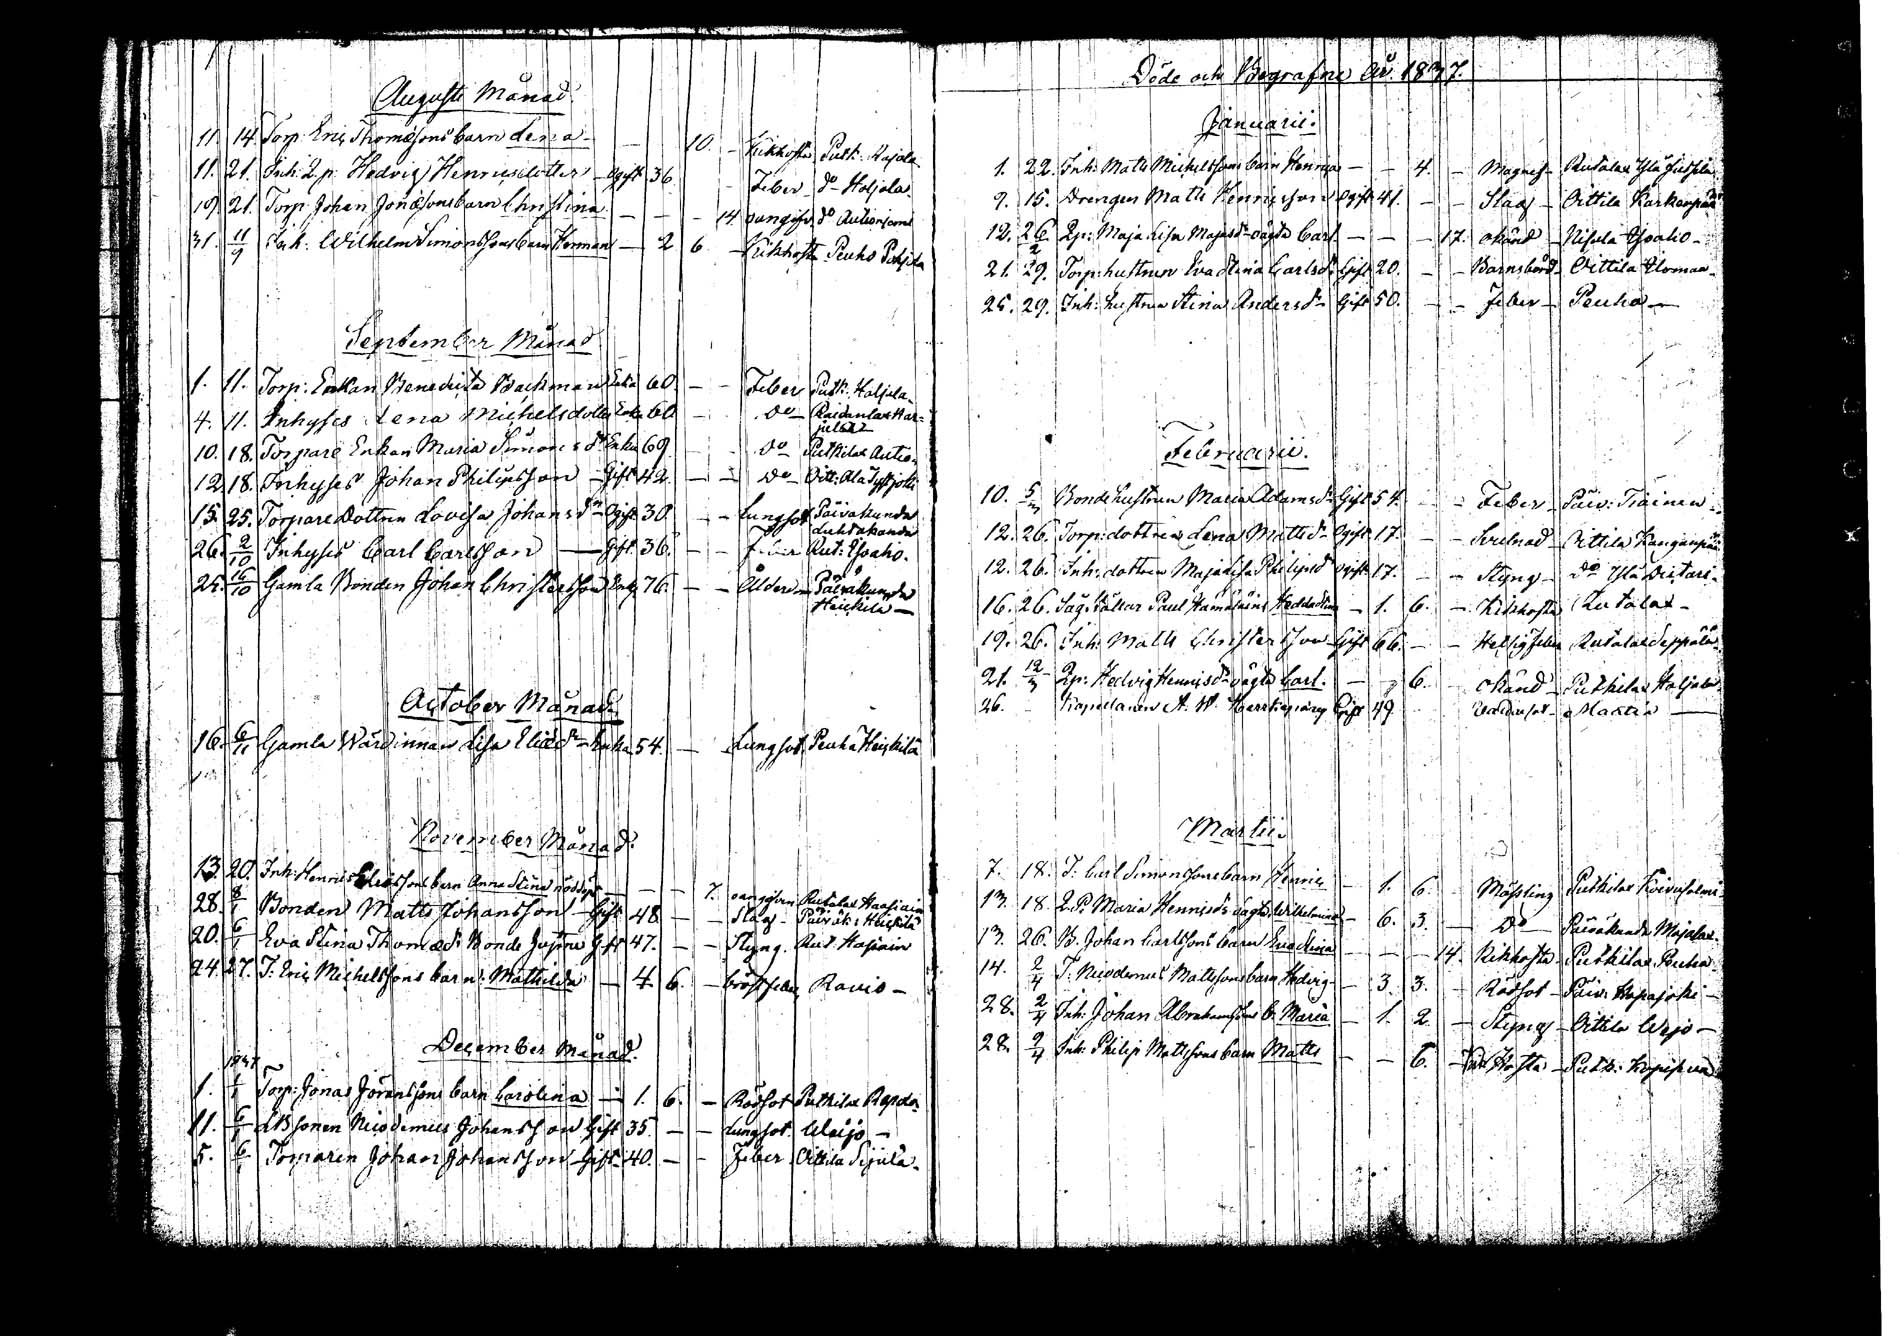 Augusti Månad.
11. 14. Torp: Eric Thomæsons barn Lena — — 10. — Kikhosta Putk: Rajala
11. 21. Inh: Q.p. Hedvig Henricsdotter — Ogift 36 Feber do Holjala
19. 21. Torp: Johan Jonæsons barn Christina — — — 14. oangifvn do
31. 11/9 Inh: Wilhelm Simonssons barn Herman — 2 6. — Kikhosta Peuho Pohjola
September Månad
1. 11. Torp: Enkan Benedicta Backman Enka 60. — — Feber Putk: Holjola
4. 11. Inhyses Lena Michelsdotter Enka 60 — do — Raidanlax Har-
10. 18. Torpare Enkan Maria Simons dr Enka 69. do Putkilax Autio
12. 18. Inhyses Johan Philipsson — Gift 42. — — do — Oitt: Ala
15. 25. Torpare Dottren Lovisa Johans dr Ogift 30. — — Lungsot Päiväkunda
Luhdakanda
26. 2/10 Inhyses Carl Carlsson — Gift 36. — — Feber Rut: Ysaho.
25. 16/10 Gamla Bonden Johan Christersson Enkl 76. — — Ålderdom Päiväkunda
Heickilä —
October Månad
16. 6/11 Gamla Wärdinnan Lisa Eliæ dr — Enka 54. — Lungsot Peuha Heickilä
November Månad.
13. 20. Inh: Henric Eliæssons barn Anna Stina nöddöpt — — — 7. oangifven Rutalax Haapiain
28. 8/1 Bonden Matts Johansson — Gift 48. — — Slag — Päiväk: Heickilä
20. 6/1 Eva Stina Thomæ dr Bonde hustru Gift 47. — — Styng. Rut Hapiain
24. 27. T. Eric Michelssons barn: Mathilda — 4. 6. — bröstfeber Ravio —
December Månad.
1837
1. 1/1 Torp: Jonas Joranssons barn Carolina — 1. 6. — Rödsot Putkilax
11. 6/1 Bsonen Nicodemus Johansson Gift 35. — — Lungsot. Weijo —
5. 6/1 Torparen Johan Johansson — Gift 40. — — Feber Oittila
Döde och Begrafne År. 1837.
Januarii.
1. 22. Inh: Matts Michelssons barn Henrica — — 4. — Magref — Rutalax Ylä
9. 15. Drengen Matts Henricsson Ogift 41. — — Slag — Oittila Karkenpää
12. 26/2 Qp: Maja Lisa Majas dr oägta Carl — — — 17. okänd — Nisula Ysaho —
21. 29. Torp: hustrun Eva Stina Carls dr Gift 20. — — Barnsbörd — Oittila
25. 29. Inh: hustrun Stina Anders dr — Gift 50. — — Feber — Peuha —
Februarii.
10. 5/3 Bonde hustrun Maria Adams dr Gift 54. — — Feber — Päiv: Tiainen
12. 26. Torp: dottren Lena Matts dr — Ogift 17. — — Svulnad — Oittila Kanganpää
12. 26. Inh: dottren Maja Lisa Philips dr Ogift 17. — — Styng — do Ylä
16. 26. Sågställar Paul Hämäläins — 1. 6. — Kikhosta Rutalax —
19. 26. Inh: Matts Christersson — Gift 66. — — Hetsig feber Rutalax Seppälä
21. 12/3 Qp: Hedvig Henrics dr oägta Carl. — — 6. — okänd — Putkilax Holjala
26. Kapellanen A. W. Gift 49 Martin —
Martii.
7. 18. T: Carl Simonssons barn Henric — 1. 6. — Mässling Putkilax Koivusalmi
13. 18. Q.P. Maria Henrics dr oägta Wilhelmina — 6. 3. — Do — Päiväkunda Majalax
13. 26. B. Johan Carlssons barn Eva Stina — — — 14. Kikhosta — Putkilax Peuha
14. 2/4 T. Nicodemus Mattssons barn Hedvig — 3. 3. — Rödsot — Päiv: Hapajoki —
28. 2/4 Inh: Johan Abrahamssons b. Maria — 1. 2. — Styng — Oittila Weijo —
28. 2/4 Inh: Philip Mattssons barn Matts — — 6. — Hosta — Putk: